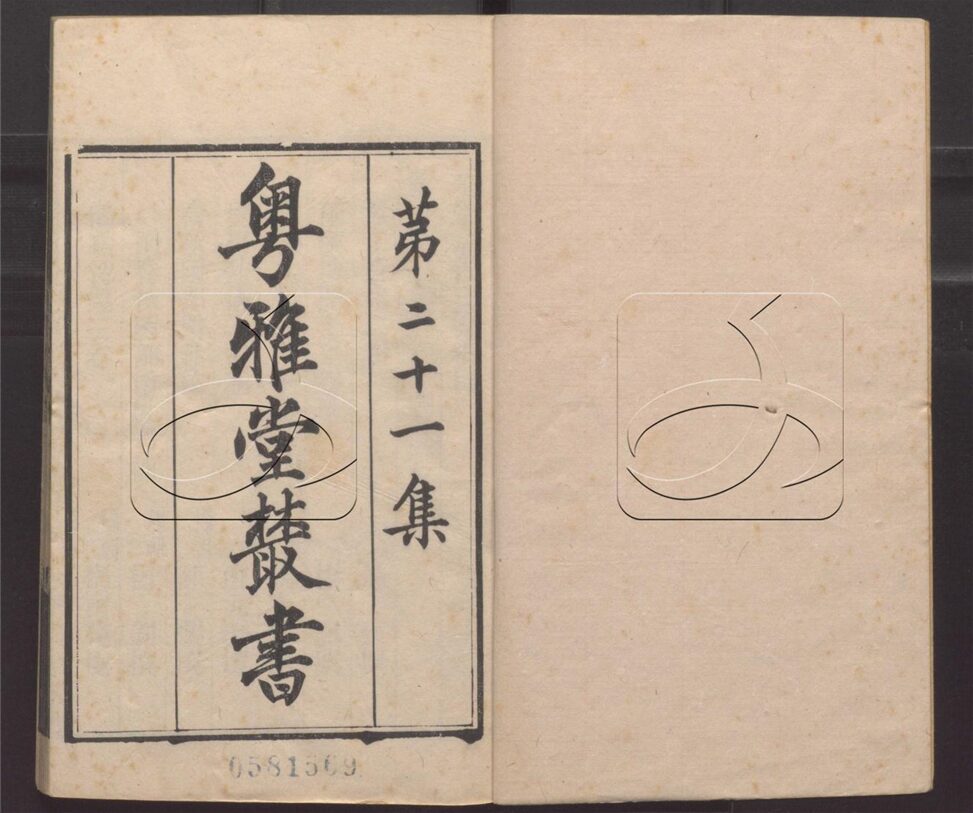 苐二十一集
粵雅堂叢書
0581509